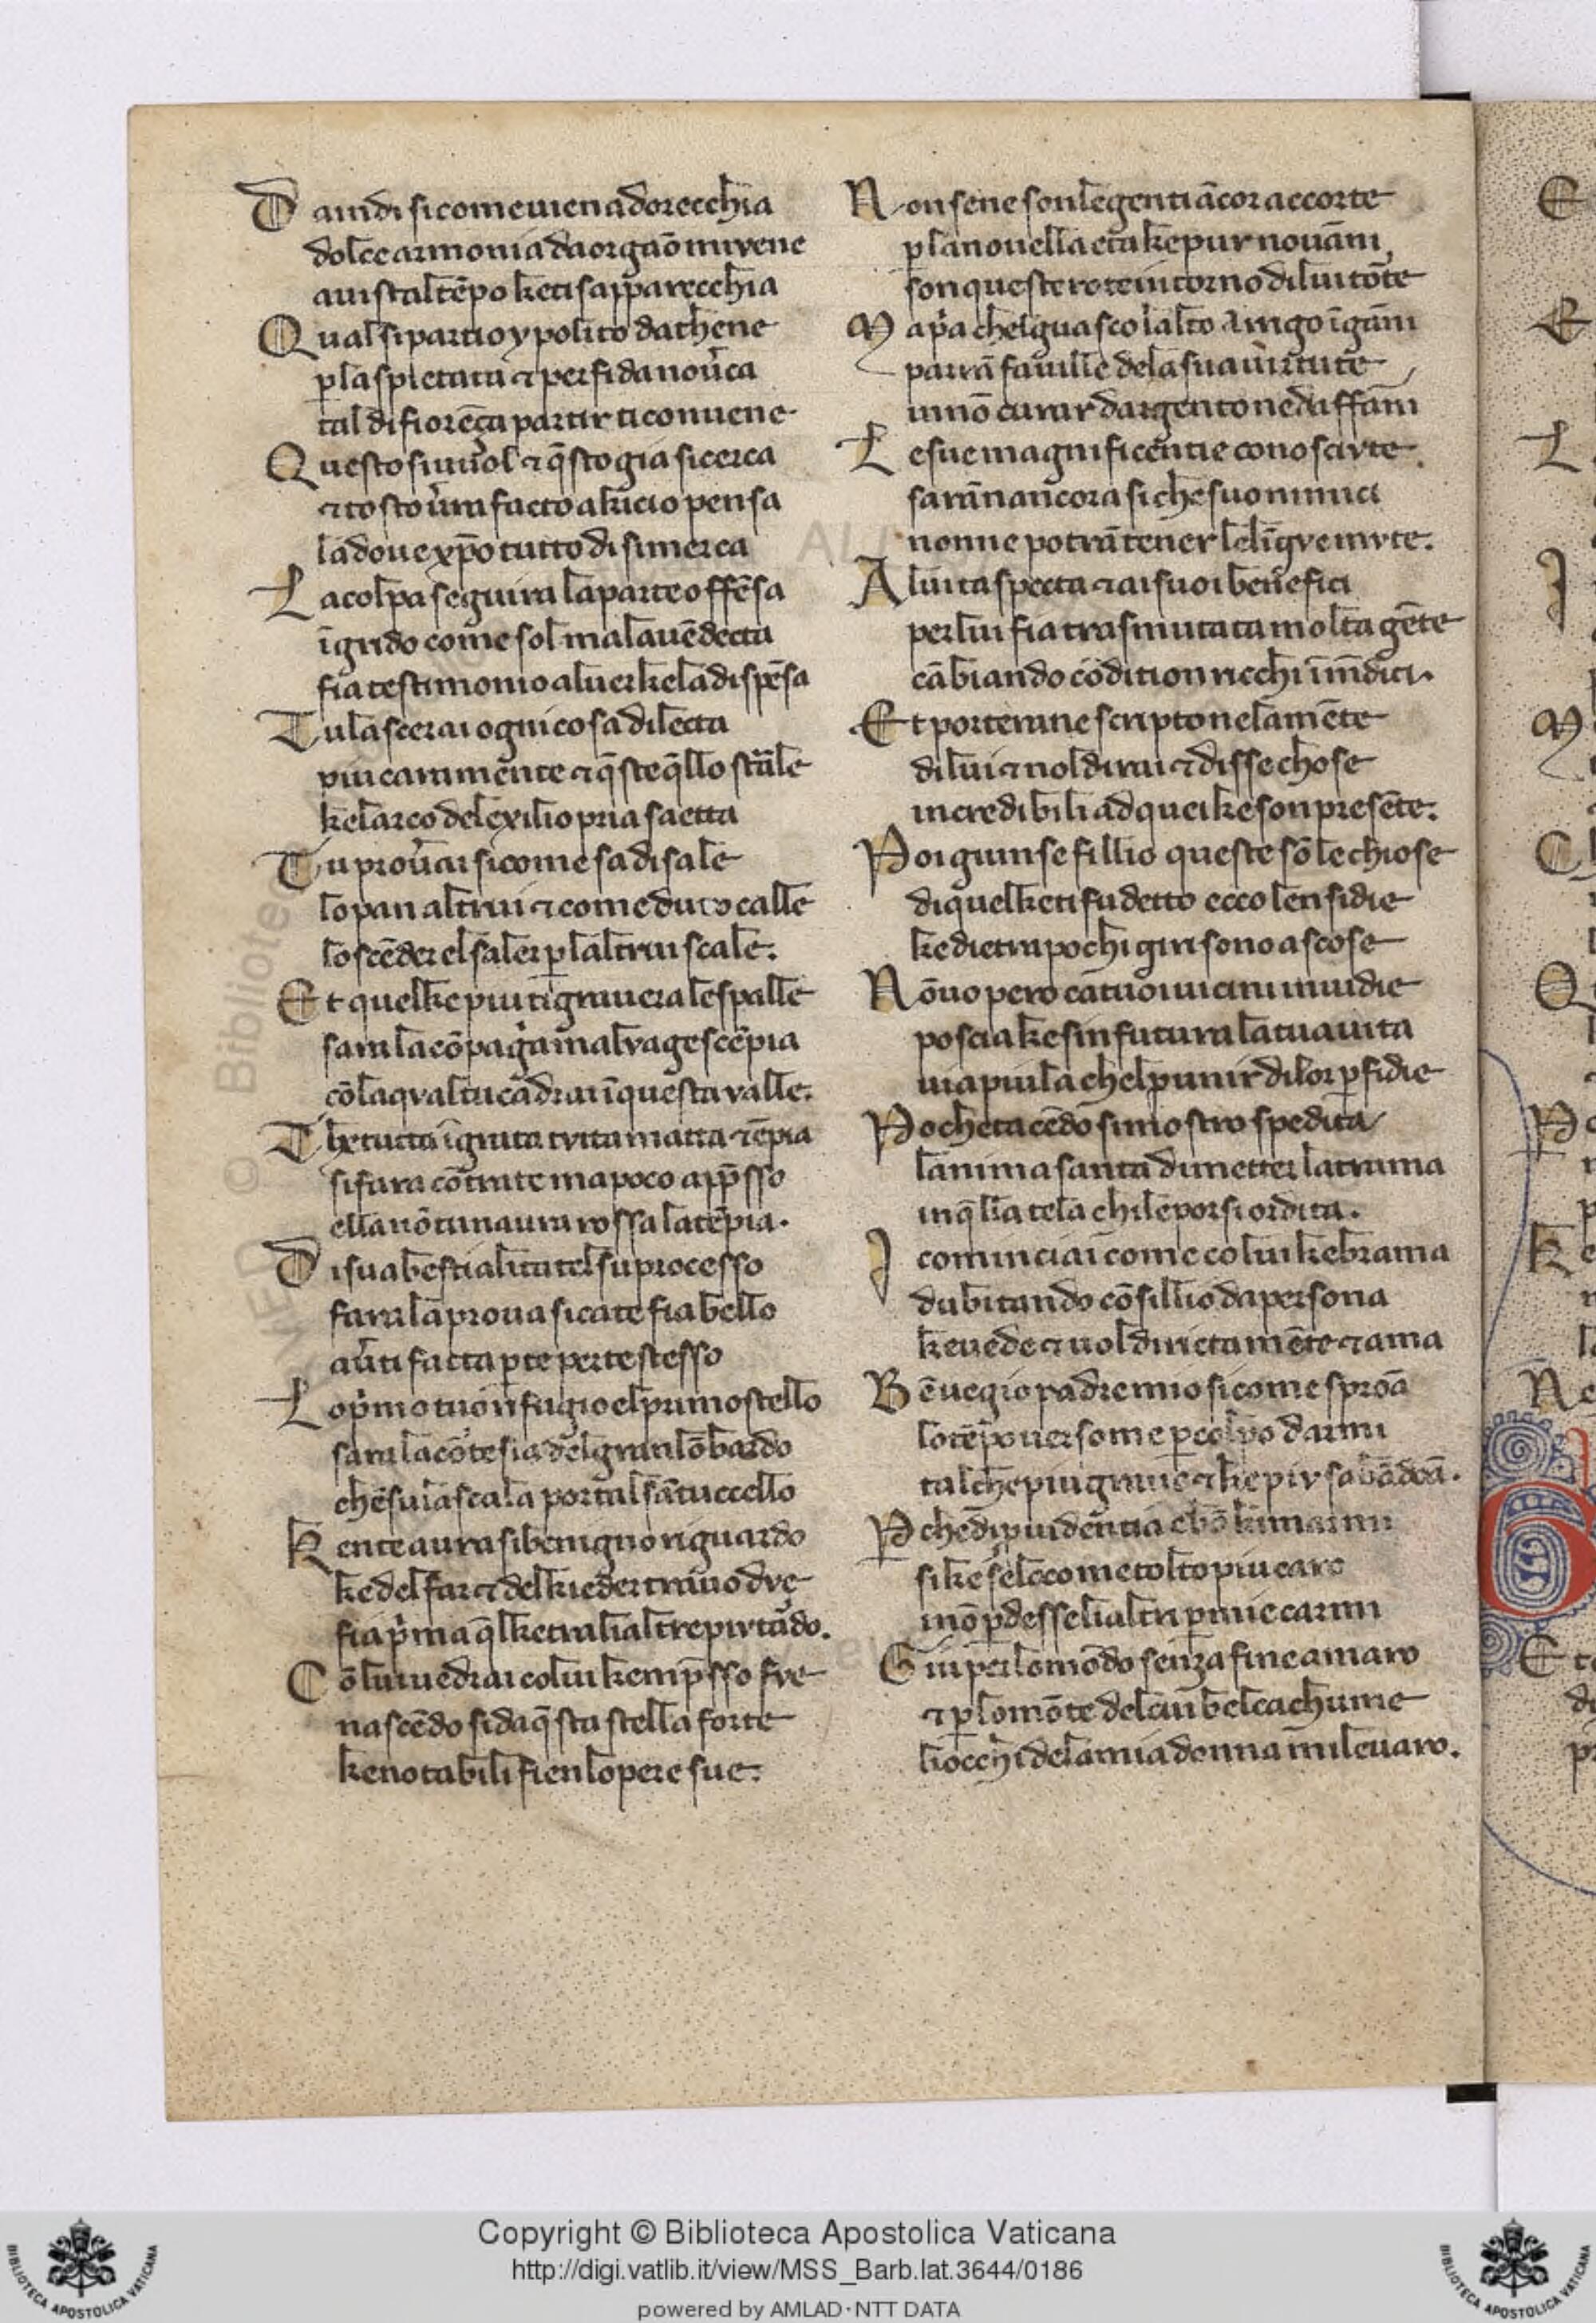 D aindi sicome uien ad orecchia
dolce armonia da orgaō mi vene
a uista l tēpo keti sapparecchia
Q ual si partio ypolito dathene
p la spietata ⁊ perfida nou̓ca
tal di fiorēça partir ti conuene
Q uesto si uuol ⁊ q̄sto gia si cerca
⁊ tosto u̓ra facto a kicio pensa
la doue xp̄o tutto di si merca
L a colpa seguira la parte offēsa
ī grido come sol ma la uēdecta
fia testimonio al uer ke la dispēsa
T u lascerai ogni cosa dilecta
piu caramente ⁊ q̄ste q̄llo strale
ke larco del exilio pria saetta
T u prou̓ai si come sa di sale
lo pan altrui ⁊ come duro calle
lo scēder el saler p laltrui scale.
E t quel ke piu ti grauera le spalle
sara la cōpagn̓a maluage scēpia
cō la qval tu cadrai ī questa valle.
T he tutta īgrata tvtta matta ⁊ ēpia
si fara cōtrate ma poco app̄sso
ella nō tu naura rossa la tēpia.
D i sua bestialitate l su processo
fara la proua si ca te fia bello
au̓ti facta p te per te stesso
L o p̓mo tuo rifugio el primo stello
sara la cōtesia del gran lōbardo
chen su la scala porta l sātuccello
K en te aura si benigno riguardo
ke del far ⁊ del kieder tra uo dve
fia p̓ma q̄l ke tra li altre piv tādo.
C ō lui uedrai colui kemp̄sso fve
nascēdo si da q̄sta stella forte
ke notabili fien lopere sue.
N on sene son le genti ācor accorte
p la nouella eta ke pur nou āni
son queste rote intorno di lui tōte
M a p̓a chel guasco lalto arrigo īgāni
parrā fauille dela sua uirtute
in nō curar dargento ne daffāni
L e sue magnificentie conoscivte
sarānancora si che suo nimici
non ne potrā tener le līgve mvte.
A lui taspecta ⁊ ai suoi benefici
per lui fia trasmutata molta gēte
cābiando cōdition ricchi ī mēdici.
E t porterane scripto nela mēte
di lui ⁊ nol dirai ⁊ disse chose
incredibili ad quei ke son presēte.
P oi giunse fillio queste sō le chiose
di quel keti fu detto ecco lensidie
ke dietra pochi giri sono ascose
N ō uo pero ca tuoi uicini inuidie
poscia ke sin futura la tua uita
uia piu la chel punir di lor pfidie
P o che tacēdo si mostro spedita
lanima santa di metter la trama
in q̄lla tela chi le porsi ordita.
I cominciai come colui ke brama
dubitando cōsillio da persona
ke uede ⁊ uol dirictamēte ⁊ ama
B ē uegio padre mio si come sproā
lo tēpo uer so me p colpo darmi
tal che piu graue ⁊ ke piv sabādoā.
P che di puidentia e bō ki marmi
si ke sel loco me tolto piu caro
i nō pdesse li altri p mie carmi
G iu per lo mōdo senza fine amaro
⁊ p lo mōte del cui bel cachume
li occhi dela mia donna mi leuaro.
Copyright © Biblioteca Apostolica Vaticana
http://digi.vatlib.it/view/MSS_Barb.lat.3644/0186
powered by AMLAD·NTT DATA